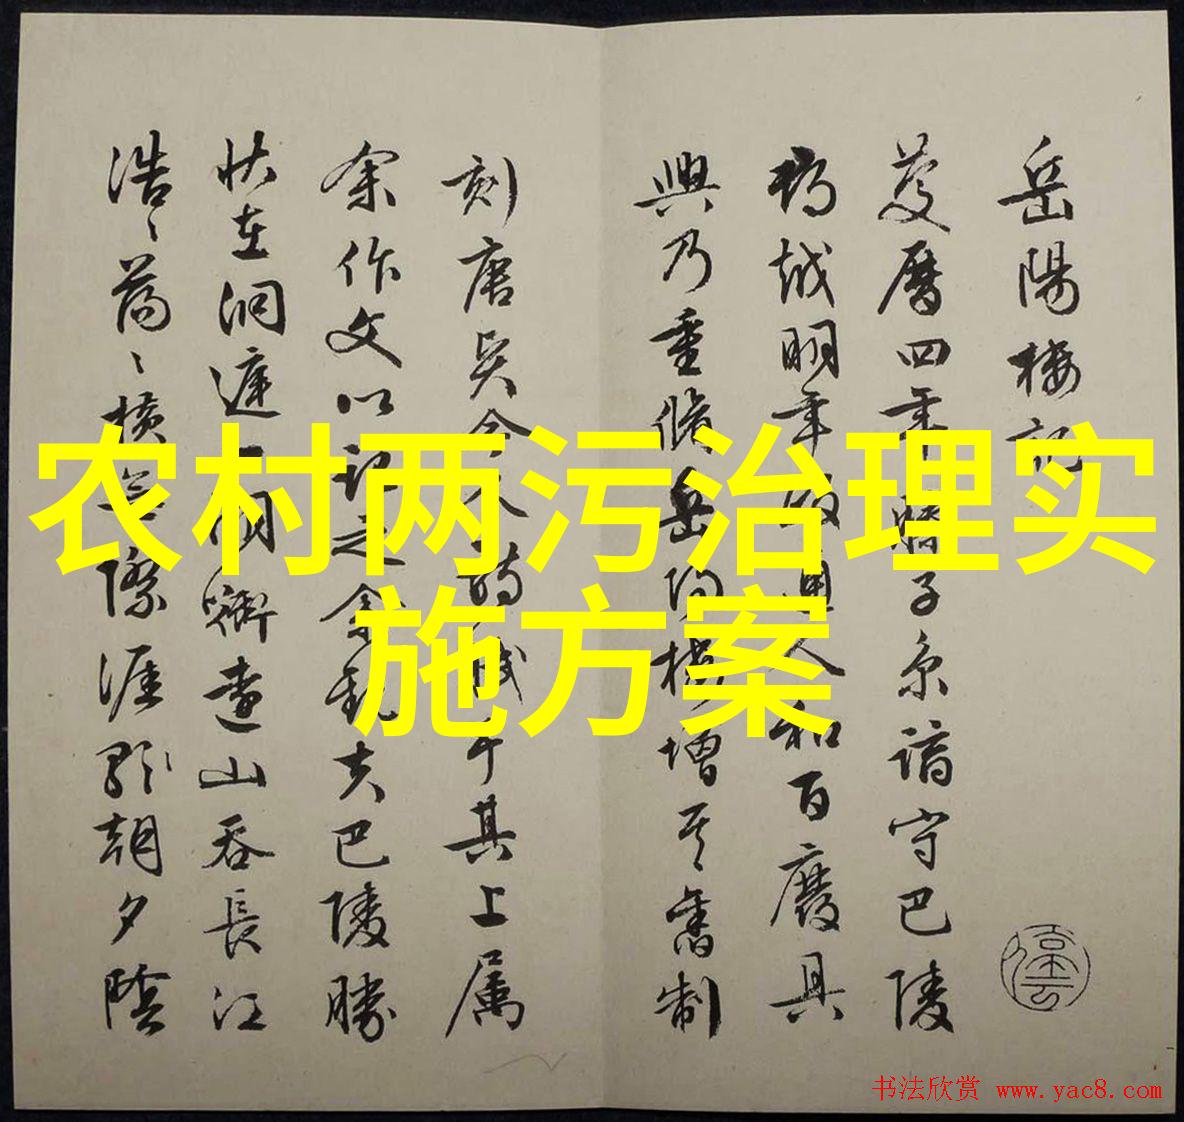 岳陽樓記
慶曆四年滕子京謫守巴陵
郡越明年政通人和百廢具
興乃重脩岳陽樓增其舊制
刻唐吴今人詩賦于其上属
余作文以記之余觀夫巴陵勝
狀在洞庭一湖銜遠山吞長江
浩〻蕩〻橫無際涯朝夕陰
农村两污治理实
施方案
书法欣赏 www.yac8.com